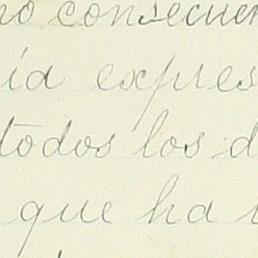 no consecuen
ía expres
todos los d
que ha